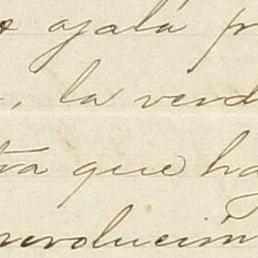 ojalá pr
la verd
tra que ha
revolución